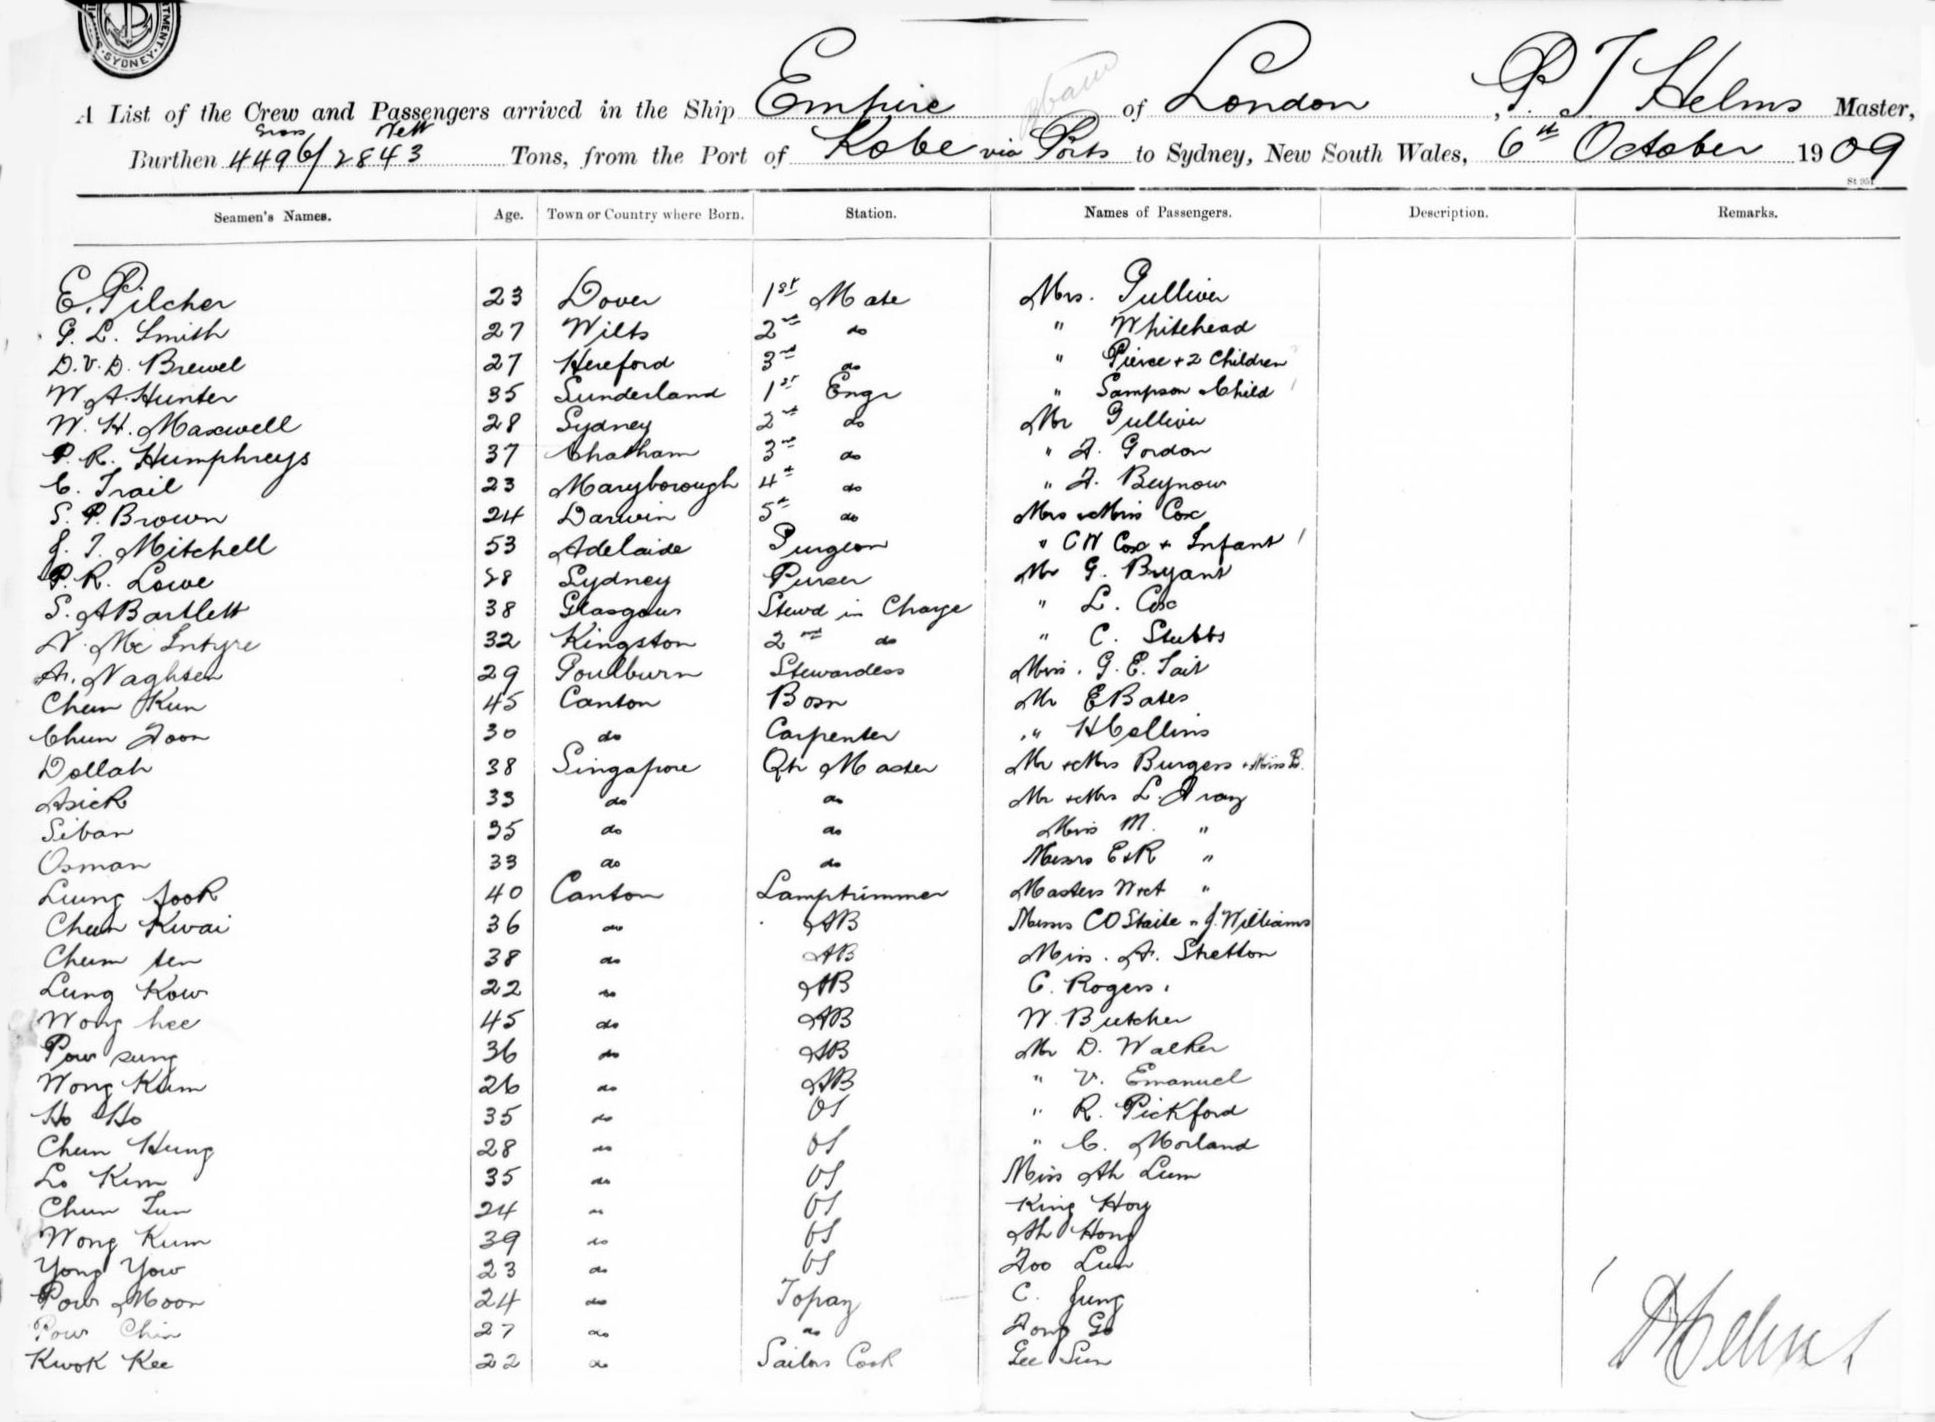 SYDNEY
A List of the Crew and Passengers arrived in the Ship Empire of London, P. T Helms Master,
Gross Nett
Burthen 4496/2843 Tons, from the Port of Kobe via Ports to Sydney, New South Wales, 6th October 1909
St 951
Seamen's Names. Age. Town or Country where Born. Station. Names of Passengers. Description. Remarks.
E. Pilcher 23 Dover 1st Mate Mrs. Gulliver
G. L. Smith 27 Wilts 2nd do " Whitehead
D. V. D. Brewel 27 Hereford 3rd do " Pierce + 2 Children
W. A. Hunter 35 Sunderland 1st Engr " Sampson + Child
W. H. Maxwell 28 Sydney 2nd do Mr Gulliver
P. R. Humphreys 37 Chatham 3rd do " F. Gordon
C. Trail 23 Maryborough 4th do " F. Beynow
S. P. Brown 24 Darwin 5th do Mrs + Miss Cox
J. T. Mitchell 53 Adelaide Surgeon " C W Cox + Infant
P. R. Lowe 28 Sydney Purser Mr G. Bryant
S. A Bartlett 38 Glasgow Stewd in Charge " L. Cox
N. McIntyre 32 Kingston 2nd do " C. Stubbs
A. Naghten 29 Goulburn Stewardess Miss. G. E. Tait
Chun Kun 45 Canton Bosn Mr E Bates
Chun Foon 30 do Carpenter " H Collins
Dollah 38 Singapore Qtr Master Mr + Mrs Burgess + Miss B.
Asick 33 do do Mr + Mrs L. Gray
Siban 35 do do Miss M. "
Osman 33 do do Messrs E + R "
Leung Sook 40 Canton Lamptrimmer Masters W + A "
Chun Kwai 36 do AB Messrs C O Staite " J. Williams
Chum Sen 38 do AB Miss. A. Shetton
Lung Kow 22 do AB C. Rogers.
Wong hee 45 do AB W. Butcher
Pow sung 36 do AB Mr D. Walker
Wong Kum 26 do AB " V. Emanuel
Ho Ho 35 do OS " R. Pickford
Chun Hung 28 do OS " C. Morland
Lo Kim 35 do OS Miss Ah Lum
Chun Tun 24 do OS King Hoy
Wong Kum 39 do OS Ah Hong
Yong Yow 23 do OS Foo Lun
Pow Moon 24 do Topaz C. Jung
Pow Chin 27 do do Fong Go
Kwok Kee 22 do Sailors Cook Gee Sun
P T Helms